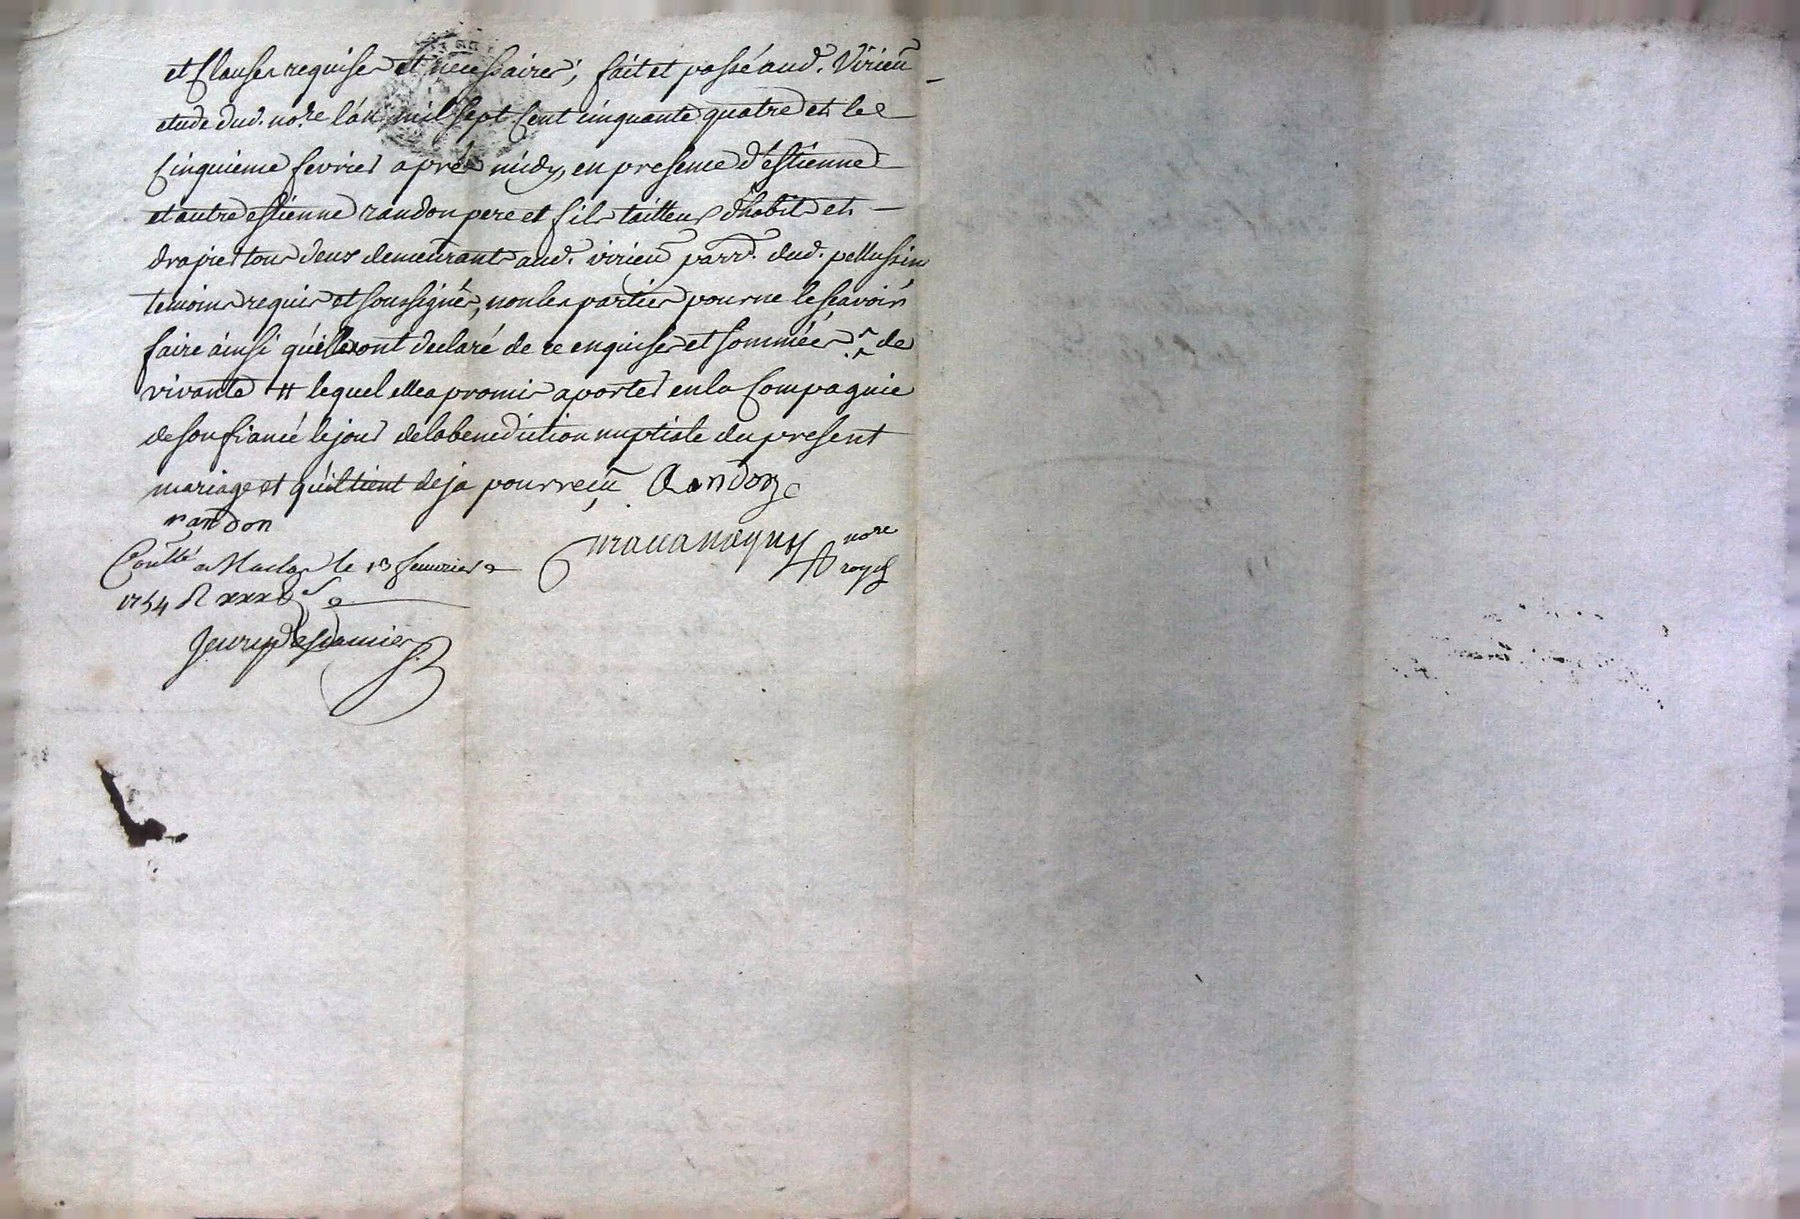 et Clauses requises et necessaires, fait et passé aud. Virieu
etude dud. no.re l'an mil sept Cent cinquante quatre et le
Cinquieme fevrier apres midy, en presence d'estienne
et autre estienne randon pere et fils tailleur d'habit et
drapier tous deux demeurant aud. virieu parr. dud. pellussin
temoins requis et soussignés, non les parties pour ne le scavoir
faire ainsi qu'elles ont declaré de ce enquises et sommées de
vivante # lequel elle a promis aporter en la Compagnie
de son fiancé le jour de la benediction nuptiale du present
mariage et qu'il tient deja pour reçu Randon
randon
no.re
Con.lé a Maclas le 13 feuvrier
royal
1754